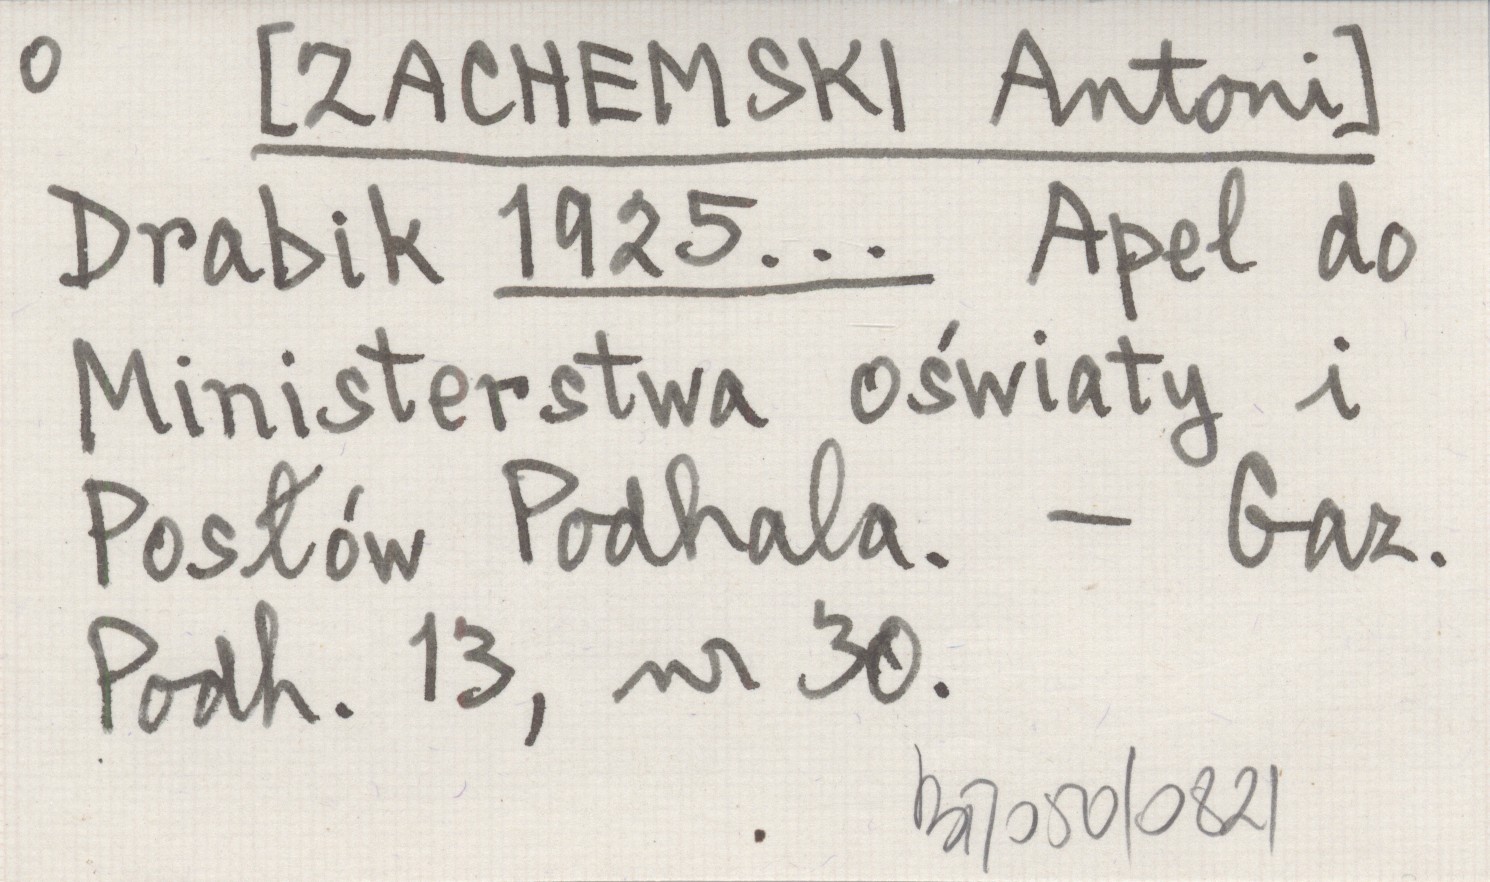 o [ZACHEMSKI Antoni]
Drabik 1925... Apel do
Ministerstwa oświaty i
Posłów Podhala. – Gaz.
Podh. 13, nr 30.